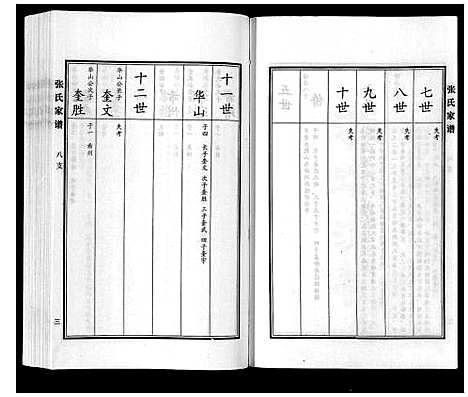 張氏家譜
七世
失考
八世
失考
九世
失考
十世
失考
十一世
华山
子四 长子奎文 次子奎胜 三子奎武 四子奎宇
十二世
华山公长子
奎文
失考
华山公次子
奎胜
子一
張氏家譜
八支
三